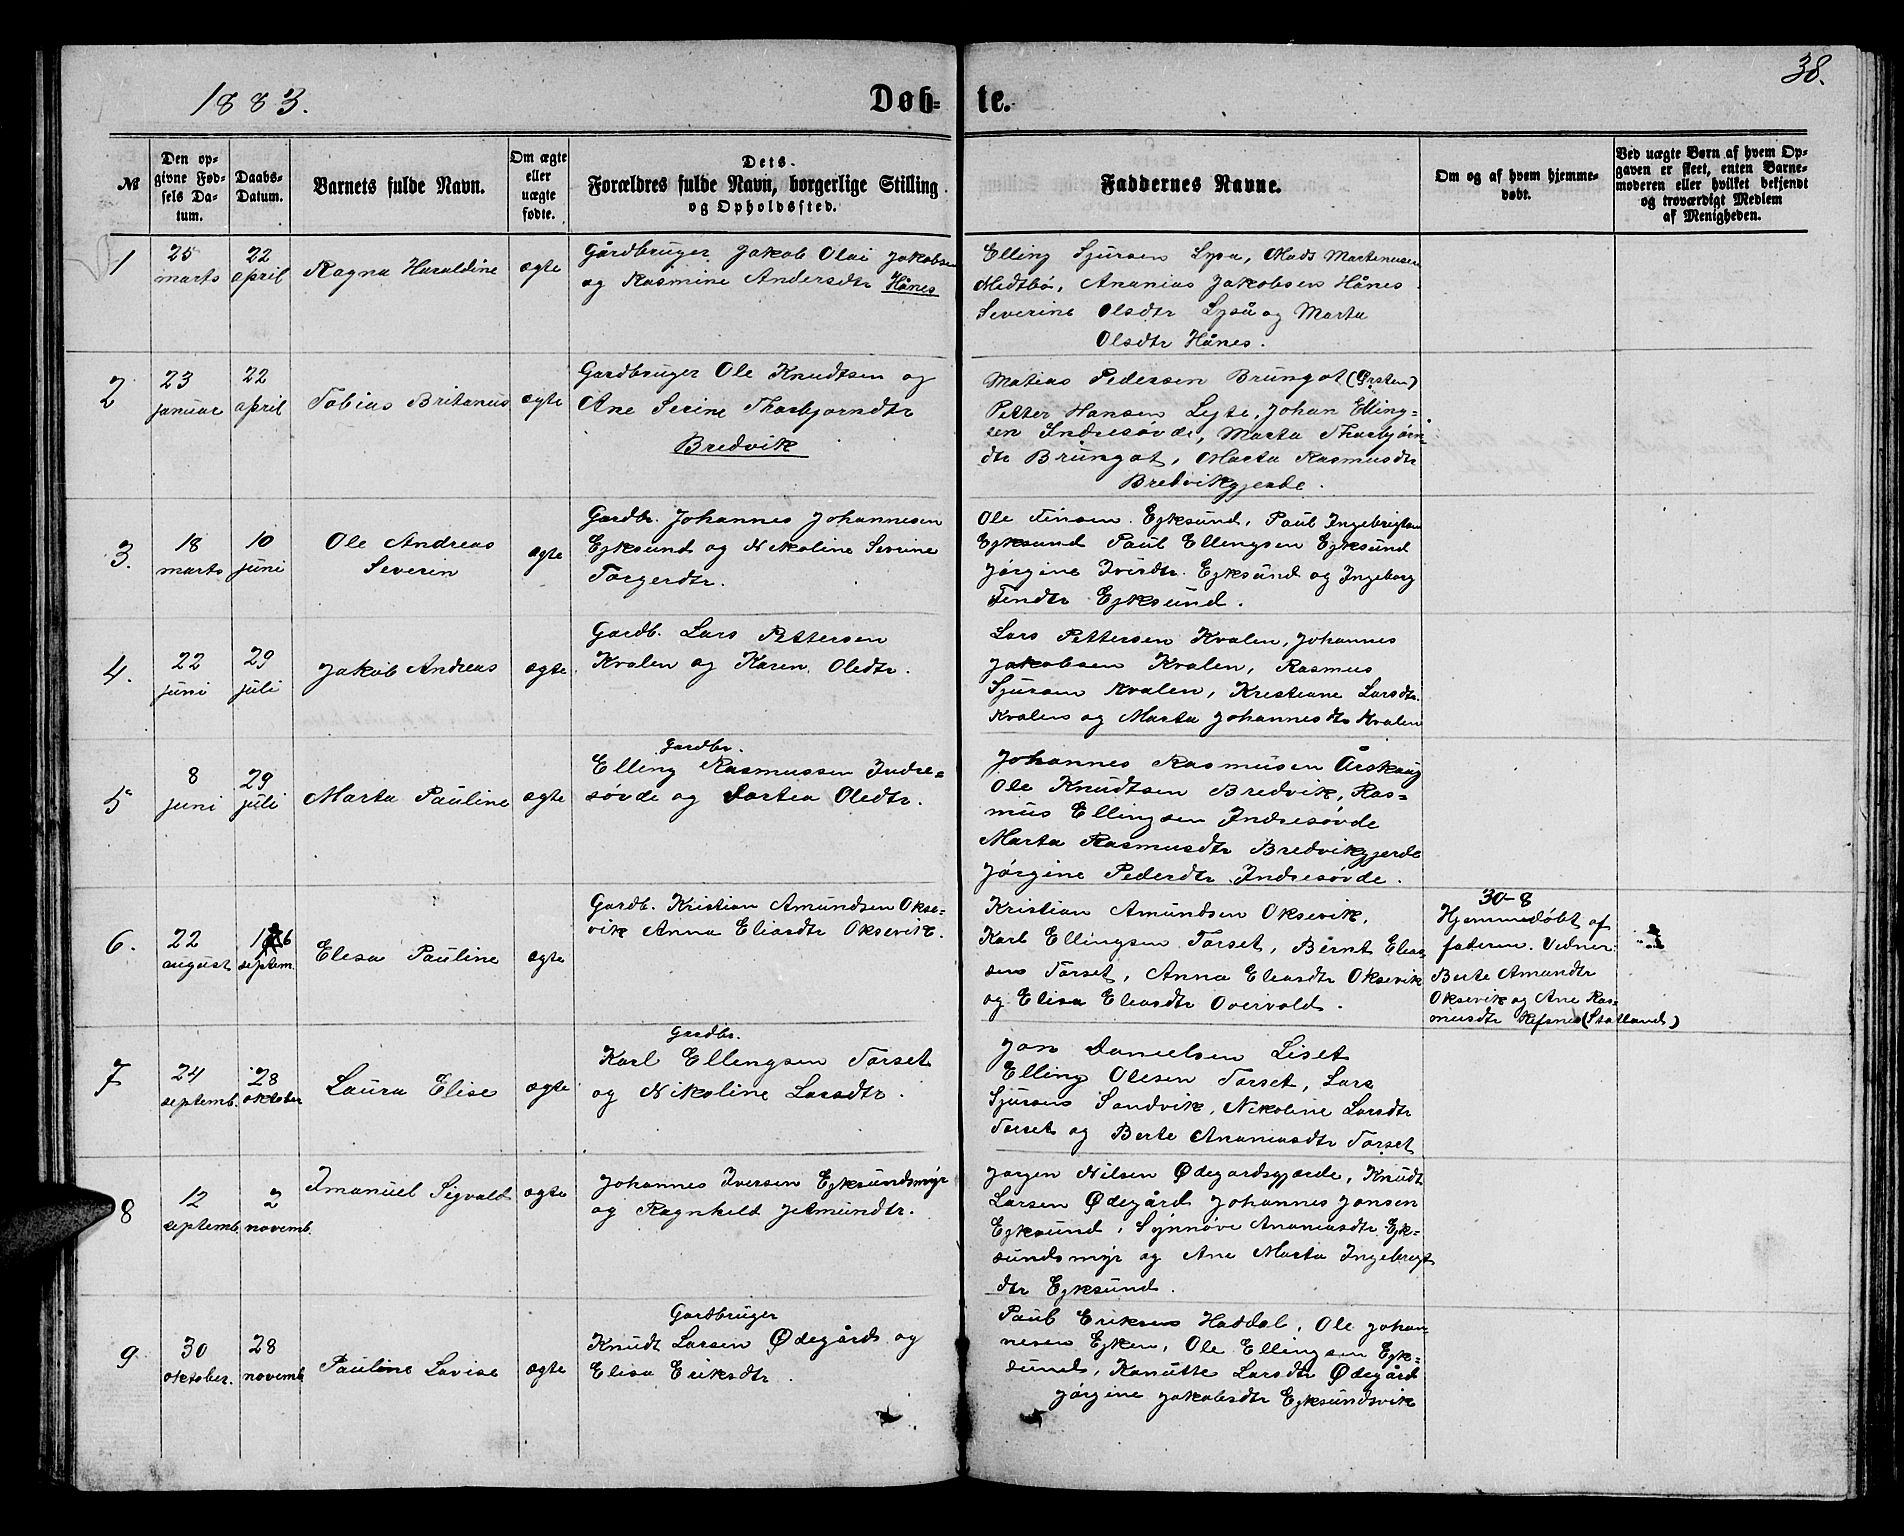 1883.
Døb-
te.
38.
№
Den op-
givne Fød-
sels Da-
tum.
Daabs-
Datum.
Barnets fulde Navn.
Om ægte
eller
uægte
fødte.
Dets
Forældres fulde Navn, borgerlige Stilling
og Opholdssted.
Faddernes Navne.
Om og af hvem hjemme-
døbt.
Ved uægte Børn af hvem Op-
gaven er skeet, enten Barne-
moderen eller hvilket bekjendt
og troværdigt Medlem
af Menigheden.
1
25
marts
22
april
Ragna Haraldine
ægte
Gårdbruger Jakob Olai Jakobsen
og Rasmine Andersdtr Hånes
Elling Sjursen Lysa, Mads Martinusen
Medtbø, Ananias Jakobsen Hånes
Severine Olsdtr Lyså og Marta
Olsdtr Hånes.
2
23
januar
22
april
Tobias Britanus
ægte
Gardbruger Ole Knudtsen og
Ane Serine Thorbjorndtr
Bredvik
Matias Pedersen Brungot (Ørsten)
Petter Hansen Legte, Johan Elling-
sen Indresøvde, Marta Thorbjørn-
dtr Brungot, Marta Rasmusdtr
Bredvikgjerde.
3.
18
marts
10
juni
Ole Andreas
Severin
ægte
Gardbr. Johannes Johannesen
Ejksund og Nikoline Severine
Torgerdtr.
Ole Finsen Ejksund, Paul Ingebrigtsen
Ejksund Paul Ellingsen Ejksund
Jørgine Iverdtr. Ejksund og Ingeborg
Findtr Ejksund.
4.
22
juni
29
juli
Jakob Andreas
ægte
Gardb. Lars Pettersen
Kvalen og Karen Oledtr.
Lars Pettersen Kvalen, Johannes
Jakobsen Kvalen, Rasmus
Sjursen Kvalen, Kristiane Larsdtr.
Kvalen og Marta Johannesdtr Kvalen
5
8
juni
29
juli
Marta Pauline
ægte
Gardbr.
Elling Rasmussen Indre-
søvde og Dortea Oledtr.
Johannes Rasmusen Årskaug
Ole Knudtsen Bredvik, Ras-
mus Ellingsen Indresøvde
Marta Rasmusdtr Bredvikgjerde
Jørgine Pederdtr. Indresøvde.
6.
22
august
16
septem.
Elesa Pauline
ægte
Gardb. Kristian Amundsen Okse-
vik Anna Eliasdtr Oksevik.
Kristian Amundsen Oksevik,
Karl Ellingsen Torset, Bernt Elias
sen Torset, Anna Eleasdtr Oksevik
og Elisa Eleasdtr Overvold.
30-8
Hjemmedøbt af
faderen. Vidner:
Berte Amundtr
Oksevik og Ane Ras-
musdtr Refsnes (Statland)
7
24
septemb.
28
oktober
Laura Elise
ægte
Gardbr.
Karl Ellingsen Torset
og Nikoline Larsdtr.
Jon Danielsen Liset
Elling Olesen Torset, Lars
Sjursen Sandvik, Nikoline Larsdtr
Torset og Berte Ananiasdtr Torset
8
12
septemb.
2
novemb.
Imanuel Sigvald
ægte
Johannes Iversen Ejksundsmyr
og Ragnhild Jetmundtr.
Jorgen Nilsen Ødegardsgjærde, Knudt
Larsen Ødegård Johannes Jonsen
Ejksund, Synnøve Ananiasdtr Ejk-
sundsmyr og Ane Marta Ingebrigt
dtr Ejksund.
9
30
oktober.
28
novemb.
Pauline Lovise
ægte
Gardbruger
Knudt Larsen Ødegård og
Elisa Eriksdtr.
Paul Eriksen Haddal, Ole Johan-
nesen Ejken, Ole Ellingsen Ejk-
sund, Kanutte Larsdtr Ødegård
Jørgine Jakobsdtr Ejksundsvik